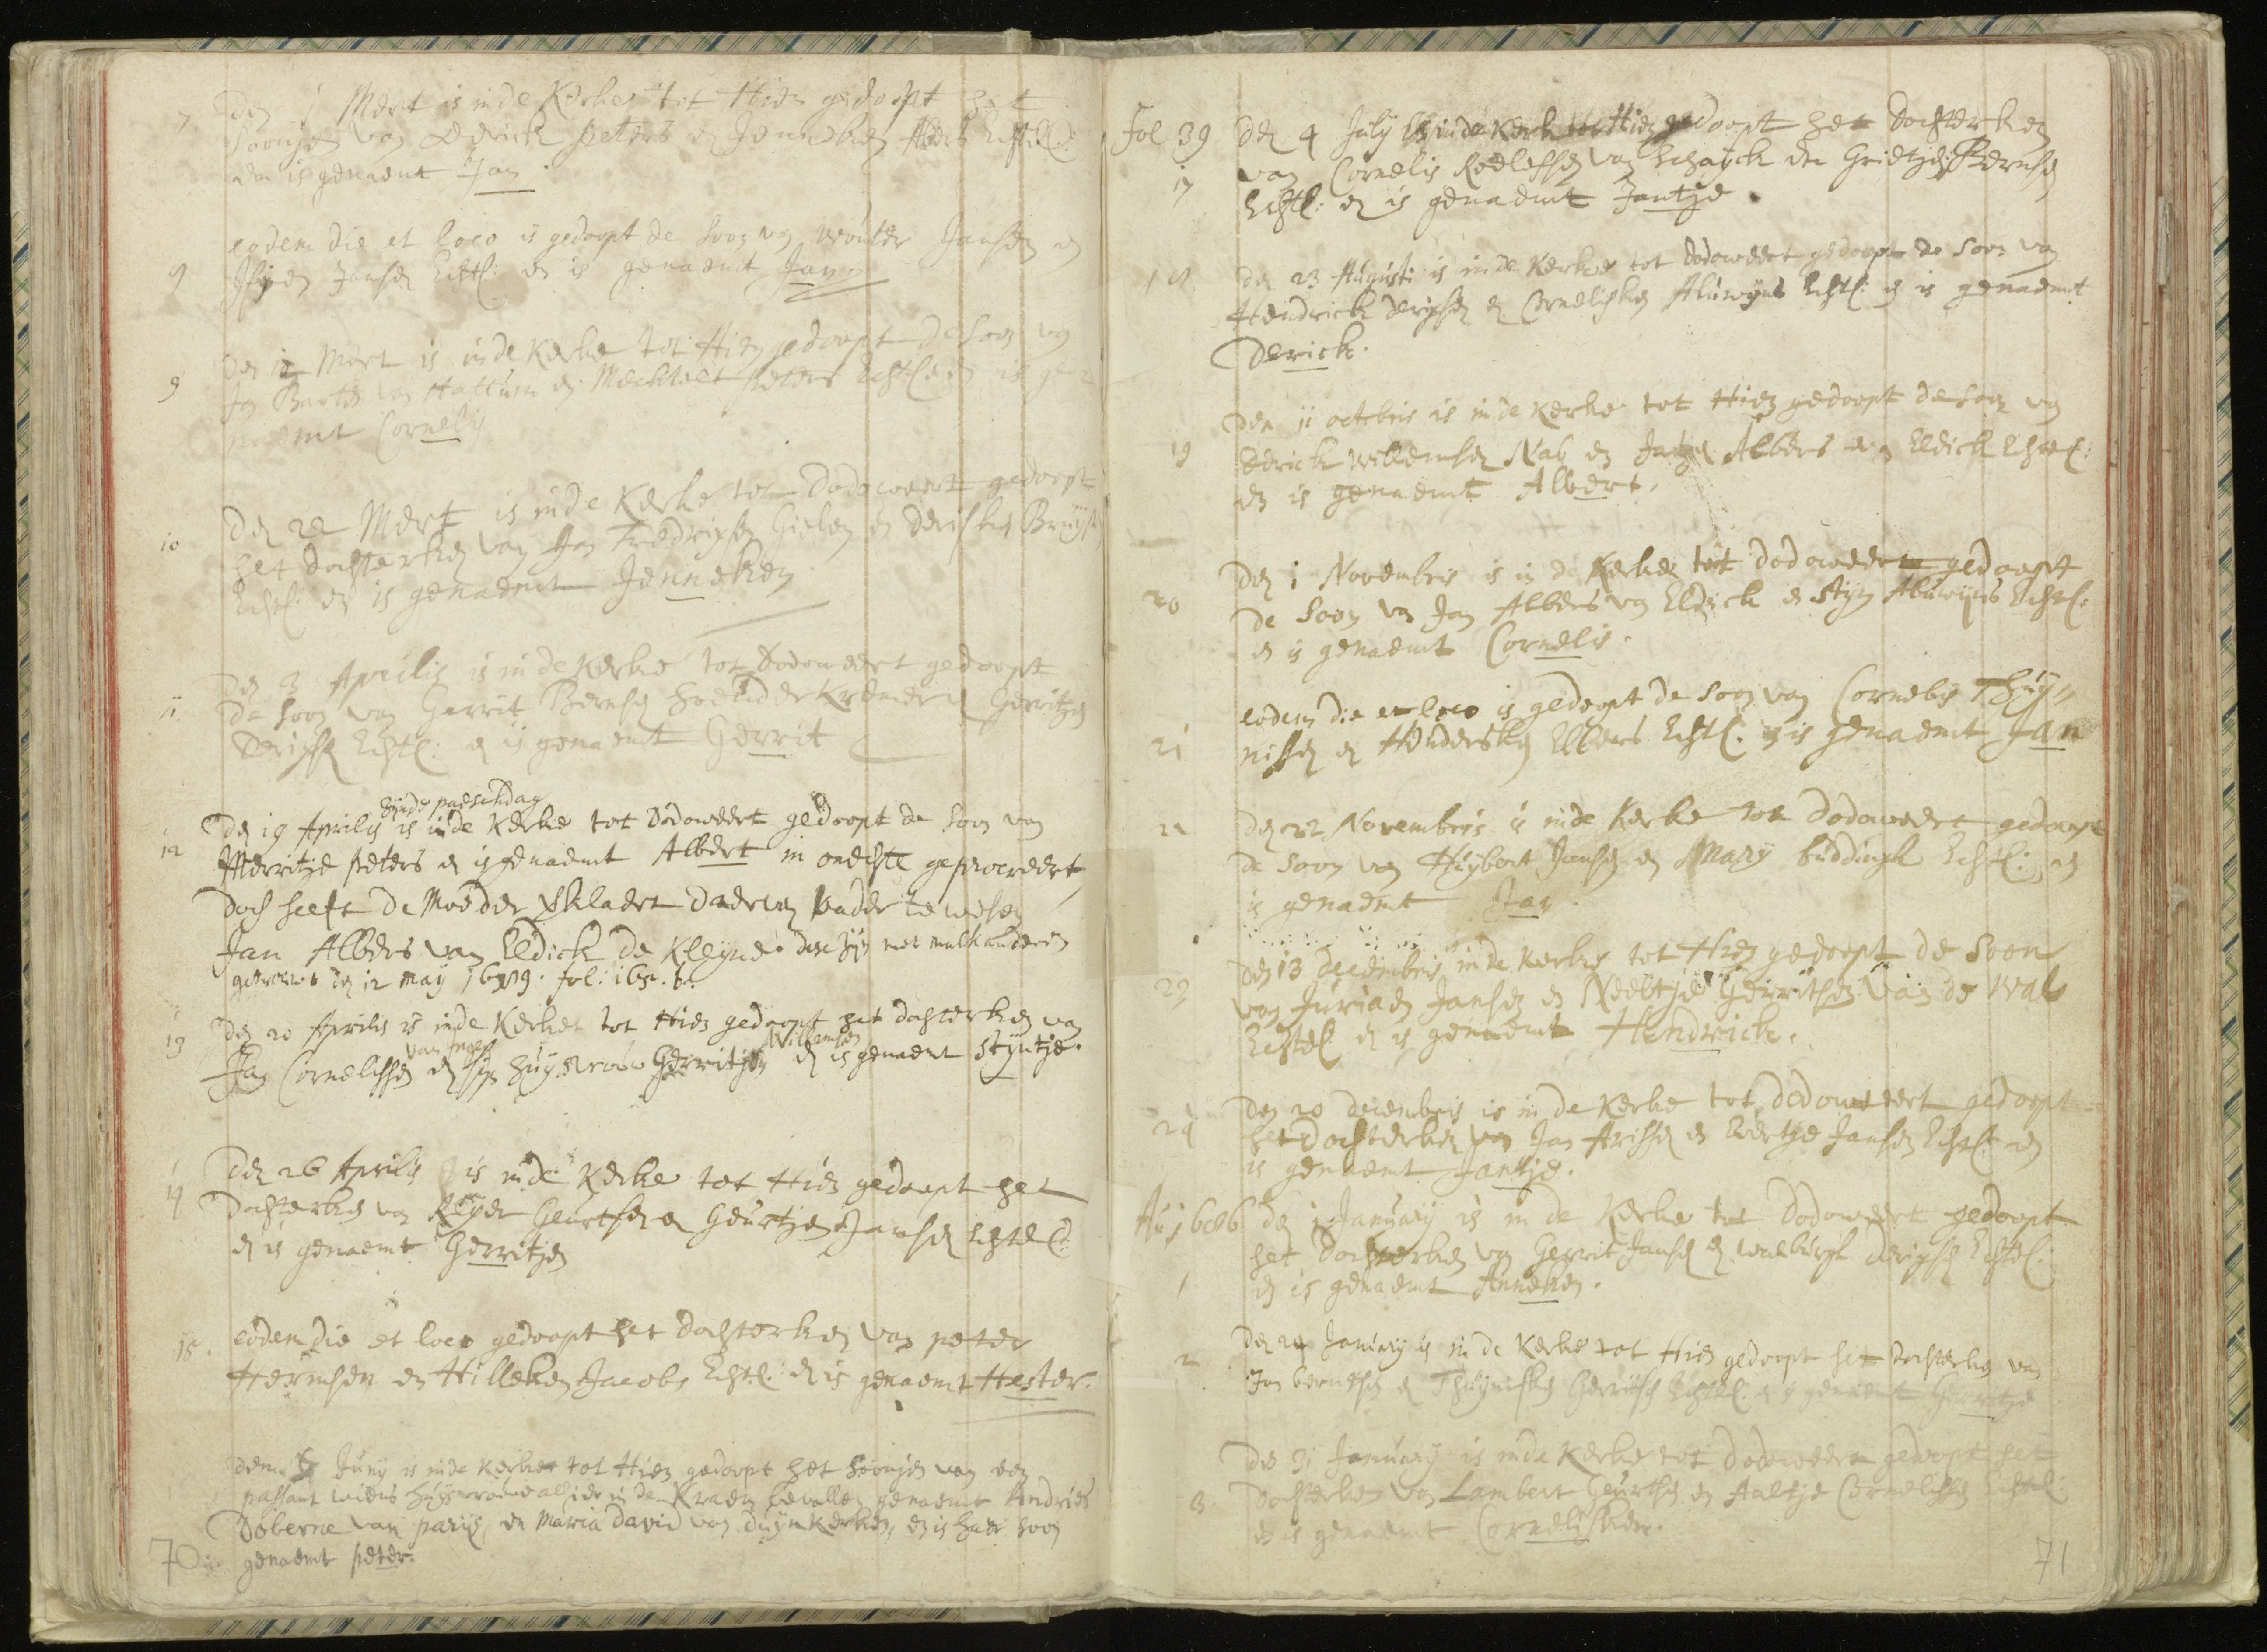 7 Den 1 Mert is in de Kerke tot Hien gedoopt het
soontjen van Derick peters en Jenneken Echtel:
en is genaemt Jan
eodem die et loco is gedoopt de soon van wouter Jansen en
Jansen Echtel: en is genaemt Jan
9 Den Mert is in de Kerke tot Hien gedoopt de soon van
Jan Barten van Hattum en Mechtelt peters Echtel en is ge
naemt Cornelis
10 Den 22 Mert is in de Kerke tot Dodoweert gedoopt
het dochterken van Jan Fredrixsen Gielen en Derisken
Echtel: en is genaemt Jenneken
11 Den 3 Aprilis is in de Kerke tot Dodoweert gedoopt
de soon van Gerrit Bernsen en Gerritjen
Derixsen Echtel: en is genaemt Gerrit
zijnde paeschdag
12 Den 19 Aprilis is in de Kerke tot Dodoweert gedoopt de soon van
Merritje peters en is genaemt Albert in onechte geprocreert,
doch heeft de Moeder verklaert daer van vader te wesen
Jan Albers van Eldick de Kleyne. dese zijn met malkanderen
getrout den 12 may fol: b.
13 Den 20 Aprilis is in de Kerke tot Hien gedoopt het dochterken van
van Ingen Willemsen
Jan Cornelissen en sijn huysvrouw Gerritjen en is genaemt Styntje.
14 Den 26 Aprilis is in de Kerke tot Hien gedoopt het
dochterken van Reyer Geurtsen en Geurtjen Jansen Echtel:
en is genaemt Gerritjen
15. eodem die et loco gedoopt het dochterken van peter
Hermsen en Hilleken Jacobs Echtel: en is genaemt Hester.
den Juny is in de Kerke tot Hien gedoopt het soontjen van een
passant wiens huysvrouwe alhier in de Kraem bevallen genaemt Andries
Doberne van parijs, en Maria David van Duynkerken, en is haer soon
genaemt peter.
70
Fol 39 Den 4 July is in de Kerk tot Hien gedoopt het dochterken
17 van Cornelis Roelofsen van Schayck en Grietjen Bernsen
Echtel: en is genaemt Jantje.
18 Den 23 Augusti is in de Kerke tot Dodoweert gedoopt de soon van
Hendrick Derixsen en Cornelisken Aluwijns Echtel: en is genaemt
Derick.
19 Den 11 octobris is in de Kerke tot Hien gedoopt de soon van
Derick Willemsen Nab en Jantjen Albers van Eldick Echtel:
en is genaemt Albert.
20 Den 1 Novembris is in de Kerke tot Dodoweert gedoopt
de soon van Jan Albers van Eldick en Stijn Aluwijns Echtel:
en is genaemt Cornelis.
21 eodem die et loco is gedoopt de soon van Cornelis Thuy„
nissen en Hendersken Elbers Echtel. en is genaemt Jan
22 Den 22 Novembris is in de Kerke tot Dodoweert gedoopt
de soon van Huybert Jansen en Mary buddingh Echtel: en
is genaemt Jan.
23 Den 13 decembris is in de Kerke tot Hien gedoopt de soon
van Juriaen Jansen en Neeltje Gerritsen van de Wal
Echtel en is genaemt Hendrick.
24 Den 20 decembris is in de Kerke tot Dodoweert gedoopt
het dochterken van Jan Arissen en Eertje Jansen Echtel: en
is genaemt Jantje.
An 1686 den 1 January is in de Kerke tot Dodoweert gedoopt
het dochterken van Gerrit Jansen en walburgh Derixsen Echtel:
1 en is genaemt Anneken.
2 Den 24 January is in de Kerke tot Hien gedoopt het dochterken van
Jan berntsen en Thuynisken Gerritsen Echtel: en is genaemt Gerritje
Den 31 January is in de Kerke tot Dodoweert gedoopt het
3 dochterken van Lambert Geurtsen en Aeltje Cornelissen Echtel:
en is genaemt Cornelisken.
71